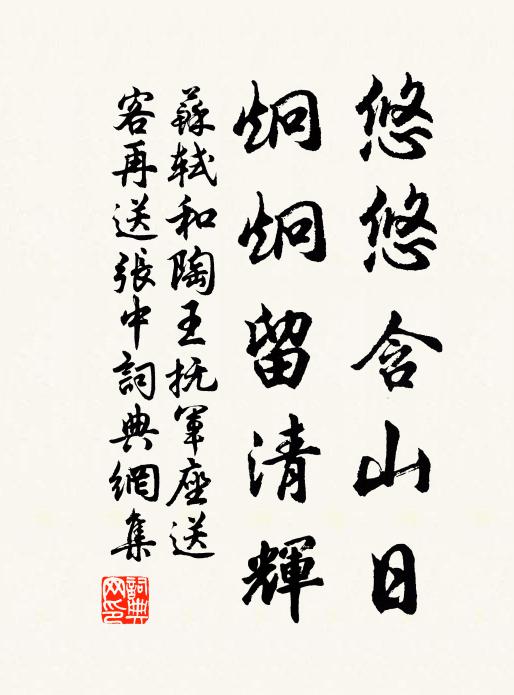 悠悠含山日
炯炯留清輝
蘇軾和陶王抚軍座送
客再送張中詞典網集
詞典
网印